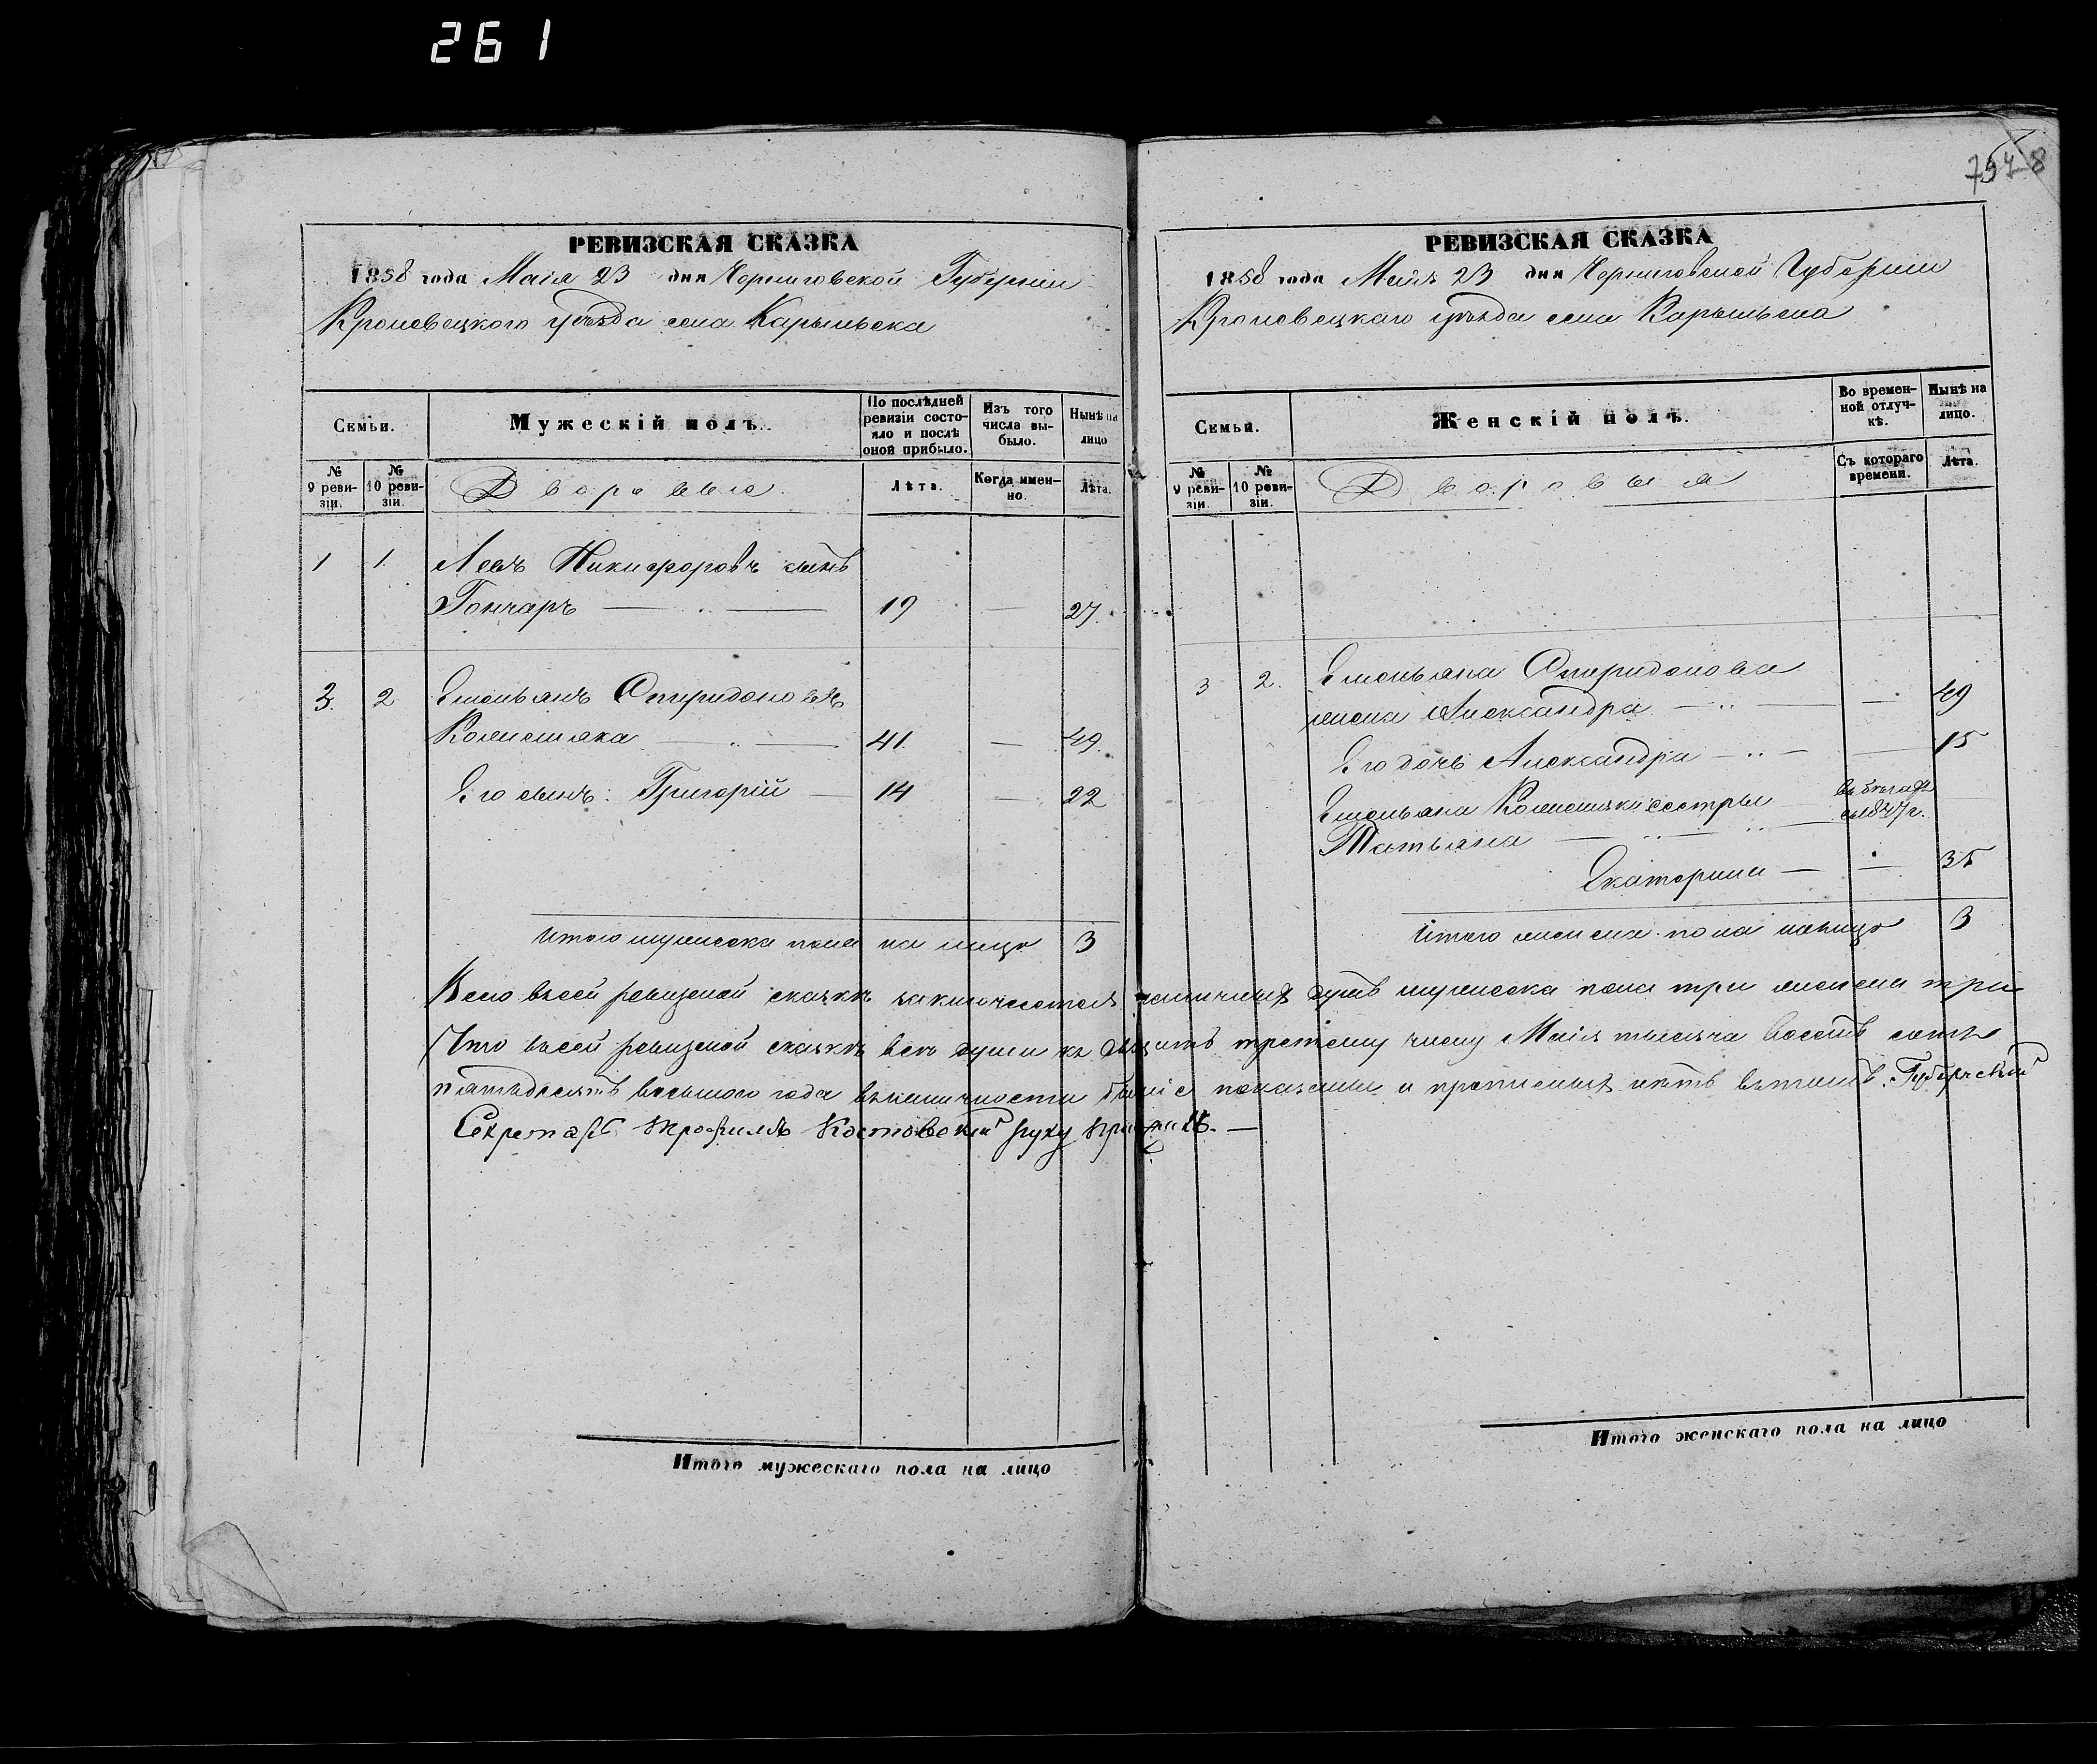 261
7578
РЕВИЗСКАЯ СКАЗКА
1858 года Маія 23 дня Черниговской Губерніи
Кролевецкого уѣзда села Карыльска
Семьи.
Мужескій полъ.
По послѣдней ревизіи состояло и послѣ оной прибыло.
Изъ того числа выбыло.
Нынѣ на лицо
№ 9 ревизіи.
№ 10 ревизіи.
Дворовые
Лѣта.
Когда именно.
Лѣта.
1 1. Никифоровъ сынъ
Гончаръ — 19 — 27.
3. 2 Емельянъ Спиридоновъ
41. — 49.
Его сынъ: Григорій — 14 — 22
Итого мужеска пола на лицо 3
РЕВИЗСКАЯ СКАЗКА
1858 года Маія 23 дня Черниговской Губерніи
Кролевецкаго уѣзда села Карыльска
Семьи.
Женскій полъ.
Во временной отлучкѣ.
Нынѣ на лицо.
№ 9 ревизіи.
№ 10 ревизіи.
Дворовыя
Съ котораго времени.
Лѣта.
3 2. Емельяна Спиридонова
жена Александра — — 49
Его дочь Александра — — 15
Емельяна сестры
Татьяна —
Екатерина — — 35
Итого женска пола налицо 3
Всего всей ревизской сказкѣ заключается наличныхъ душъ мужеска пола три женска три
Что всей ревизской сказкѣ всѣ души къ двадцать третему числу Маія тысяча восемь сотъ
пятьдесятъ восьмого года въ наличности показаны и прописныхъ нѣтъ въ томъ Губернскій
Секретарь Костовскій руку приложилъ. —
Итого мужескаго пола на лицо
Итого женскаго пола на лицо